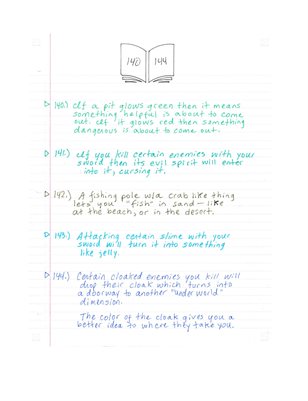 140 144
140.) If a pit glows green then it means
something helpful is about to come
out. If it glows red then something
dangerous is about to come out.
141.) If you kill certain enemies with your
sword then its evil spirit will enter
into it, cursing it.
142.) A fishing pole w/a crab like thing
lets you "fish" in sand — like
at the beach, or in the desert.
143.) Attacking certain slime with your
sword will turn it into something
like jelly.
144.) Certain cloaked enemies you kill will
drop their cloak which turns into
a doorway to another "underworld"
dimension.
The color of the cloak gives you a
better idea to where they take you.